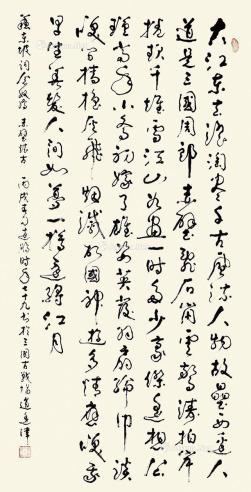 大江东去浪淘尽千古風流人物故壘西邊人
道是三國周郎赤壁亂石崩雲驚濤拍岸
捲起千堆雪江山如畫一時多少豪傑遙想公
瑾當年小喬初嫁了雄姿英發羽扇綸巾談
笑間檣櫓灰飛烟滅故國神遊多情應笑我
早生華髮人間如夢一樽還酹江月
蘇東坡詞念奴嬌赤壁懷古 丙戌 時年七十九書於三國古戰場逍遙津